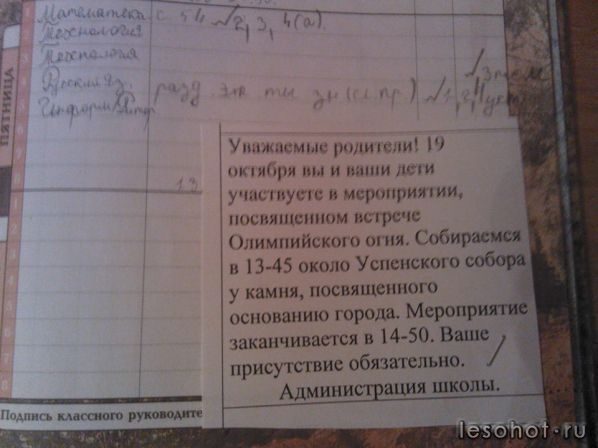 Математика с. 54 №2, 3, 4(а).
Технология
Технология
Русский яз.
ПЯТНИЦА
13
Уважаемые родители! 19
октября вы и ваши дети
участвуете в мероприятии,
посвященном встрече
Олимпийского огня. Собираемся
в 13-45 около Успенского собора
у камня, посвященного
основанию города. Мероприятие
заканчивается в 14-50. Ваше
присутствие обязательно.
Администрация школы.
Подпись классного руководите
lesohot.ru